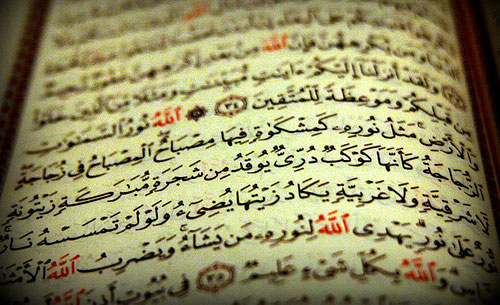 ٱللَّهُ
وَمَن يُكْرِههُّنَّ فَإِنَّ ٱللَّهَ مِنۢ بَعْدِ إِكْرَٰهِهِنَّ
وَلَقَدْ أَنزَلْنَآ إِلَيْكُمْ ءَايَٰتٍ مُّبَيِّنَٰتٍ وَمَثَلًا مِّنَ ٱلَّذِينَ خَلَوْا۟
مِن قَبْلِكُمْ وَمَوْعِظَةً لِّلْمُتَّقِينَ ٣٤ ۞ ٱللَّهُ نُورُ ٱلسَّمَٰوَٰتِ
وَٱلْأَرْضِ مَثَلُ نُورِهِۦ كَمِشْكَوٰةٍ فِيهَا مِصْبَاحٌ ٱلْمِصْبَاحُ فِى زُجَاجَةٍ
ٱلزُّجَاجَةُ كَأَنَّهَا كَوْكَبٌ دُرِّىٌّ يُوقَدُ مِن شَجَرَةٍ مُّبَٰرَكَةٍ زَيْتُونَةٍ
لَّا شَرْقِيَّةٍ وَلَا غَرْبِيَّةٍ يَكَادُ زَيْتُهَا يُضِىٓءُ وَلَوْ لَمْ تَمْسَسْهُ نَارٌ
نُّورٌ عَلَىٰ نُورٍ يَهْدِى ٱللَّهُ لِنُورِهِۦ مَن يَشَآءُ وَيَضْرِبُ ٱللَّهُ ٱلْأَمْثَٰلَ
وَٱللَّهُ بِكُلِّ شَىْءٍ عَلِيمٌ ٣٥ فِى بُيُوتٍ أَذِنَ ٱللَّهُ